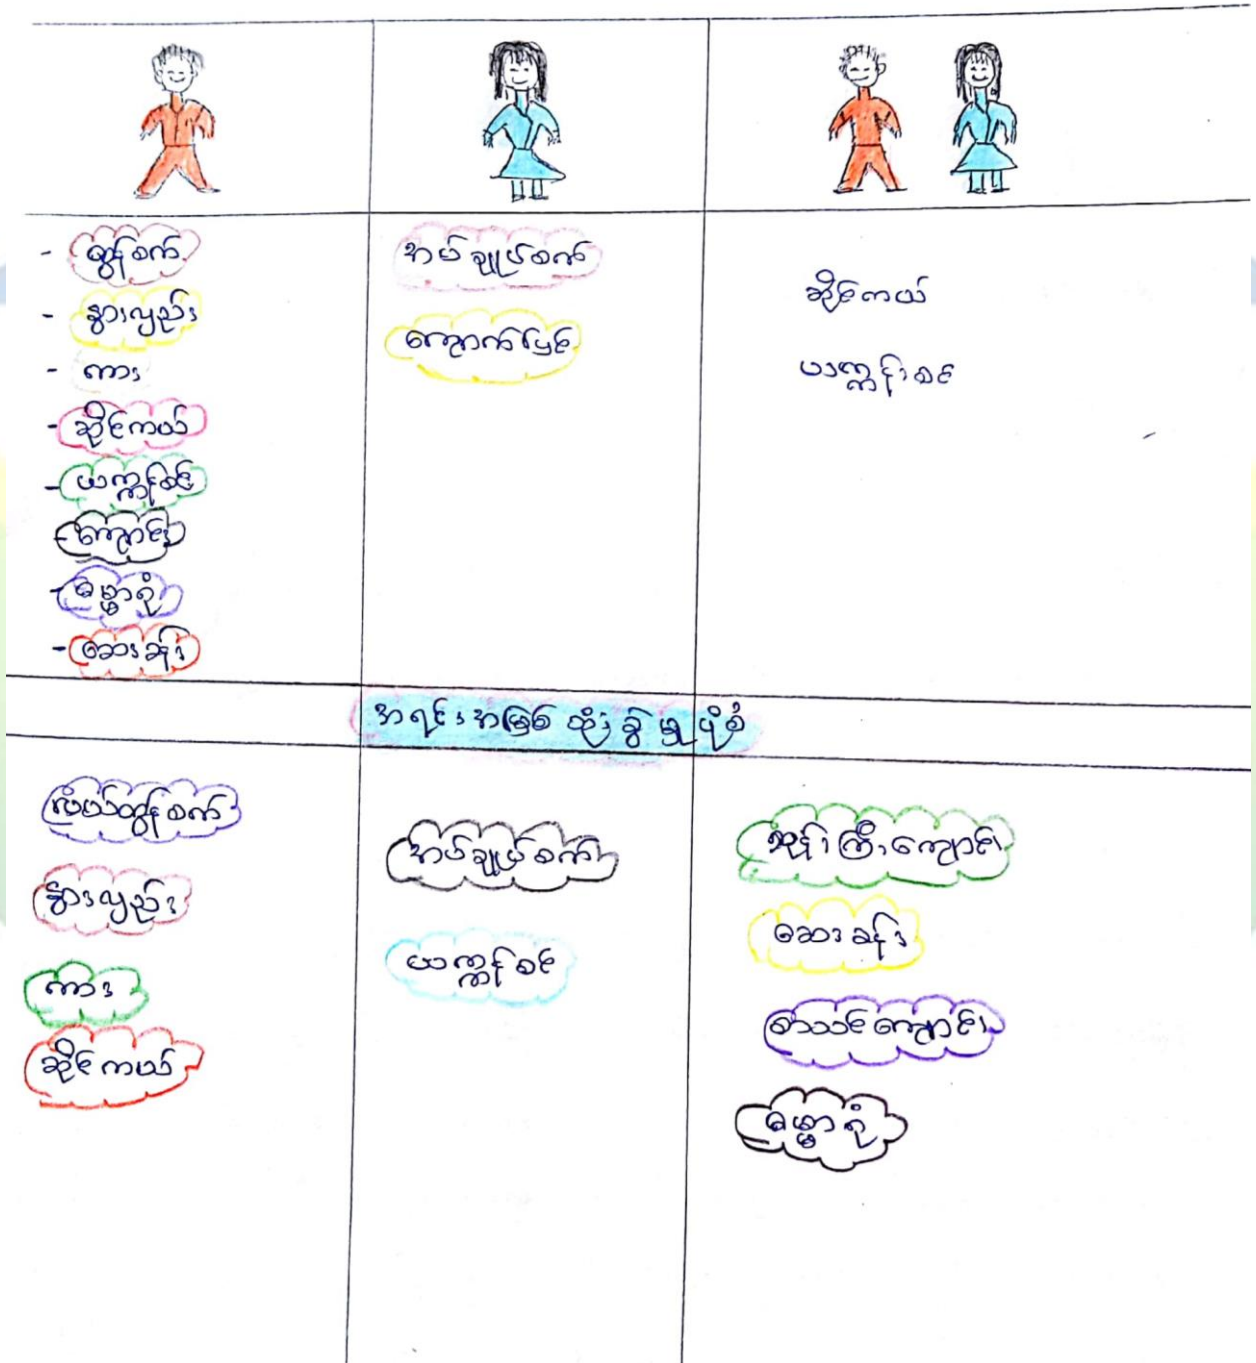 - ထွန်စက်
- နွားလှည်း
- ကား
- ဆိုင်ကယ်
- ယက္ကန်းစင်
- ကျောင်း
- ဓမ္မာရုံ
- ဆေးခန်း
အပ်ချုပ်စက်
ကျောက်ပြင်
ဆိုင်ကယ်
ယက္ကန်းစင်
အရင်းအမြစ် ထုံးခွဲမှုပုံစံ
လယ်ထွန်စက်
နွားလှည်း
ကား
ဆိုင်ကယ်
အပ်ချုပ်စက်
ယက္ကန်စင်
ဘုန်းကြီးကျောင်း
ဆေးခန်း
စာသင်ကျောင်း
ဓမ္မာရုံ